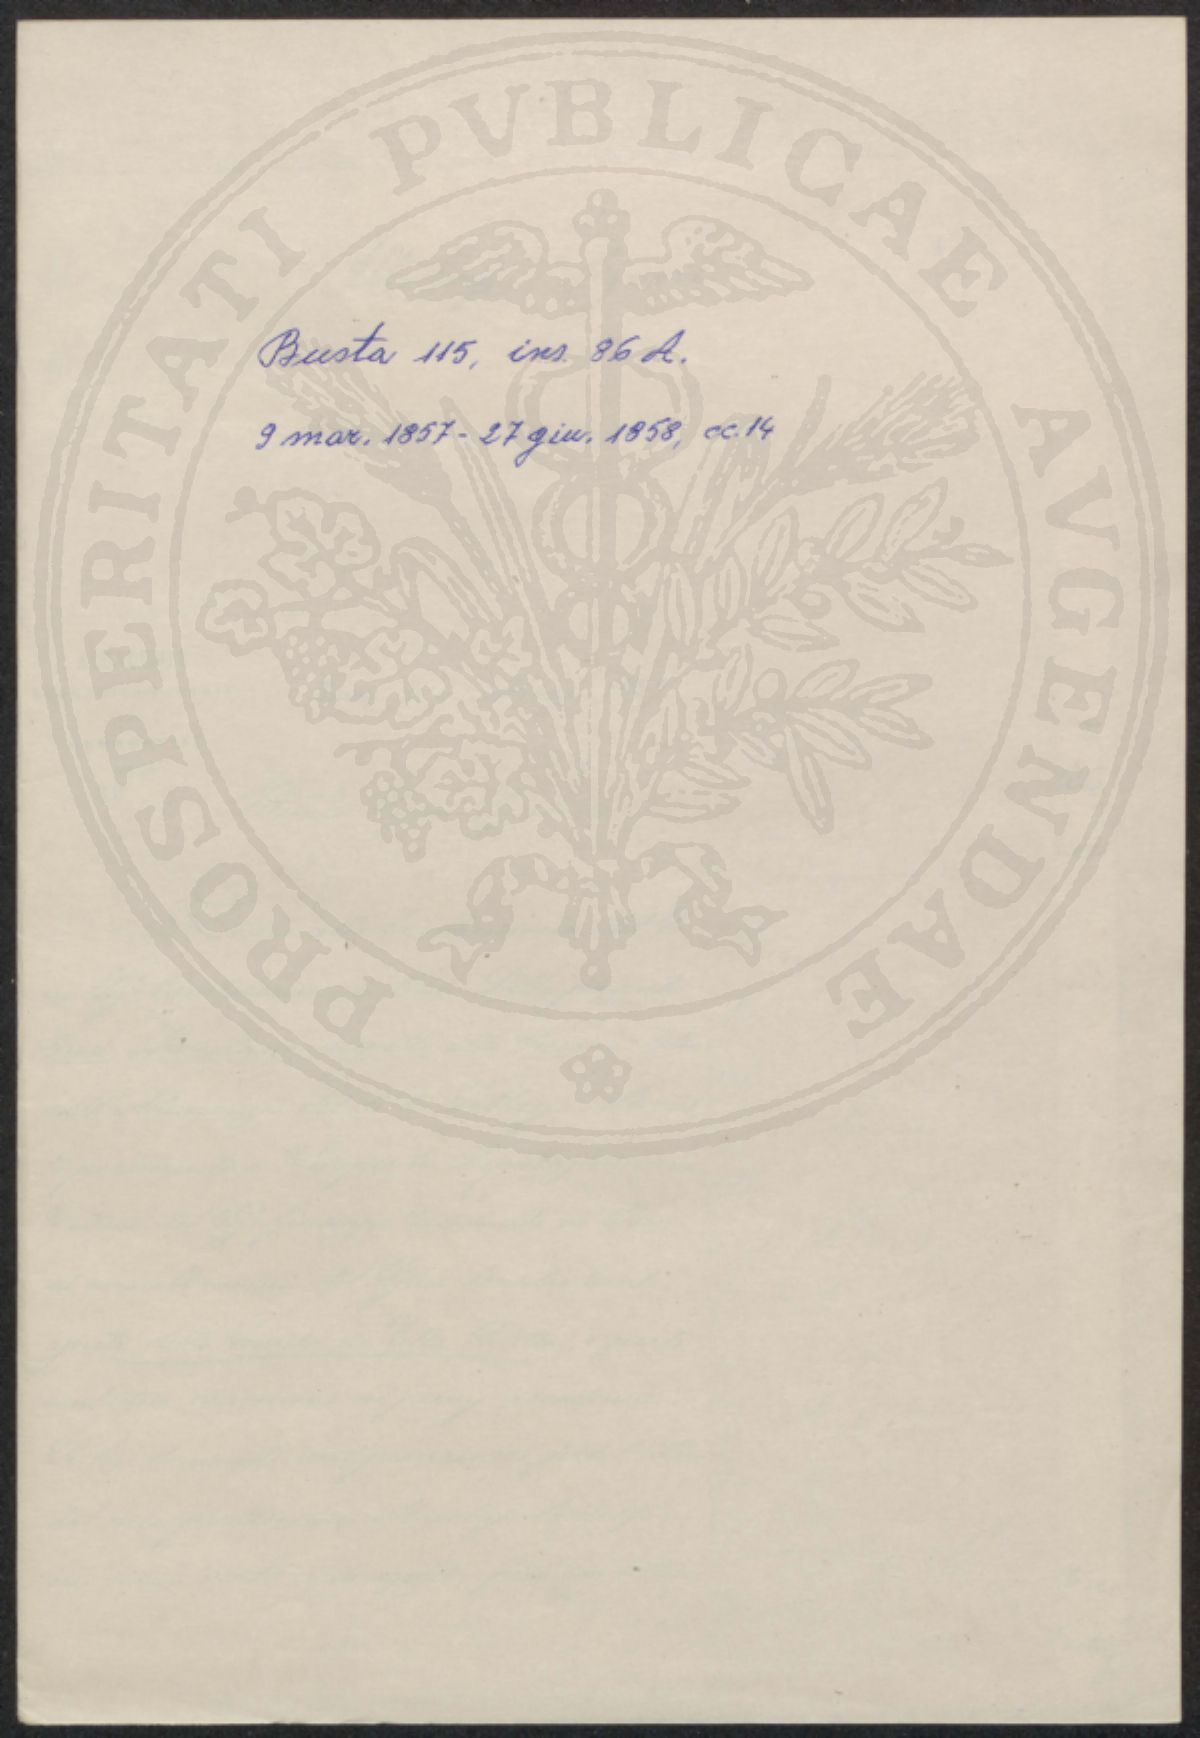 PROSPERITATI PVBLICAE AVGENDAE
Busta 115, ins. 86 A.
9 mar. 1857 - 27 giu. 1858, cc. 14